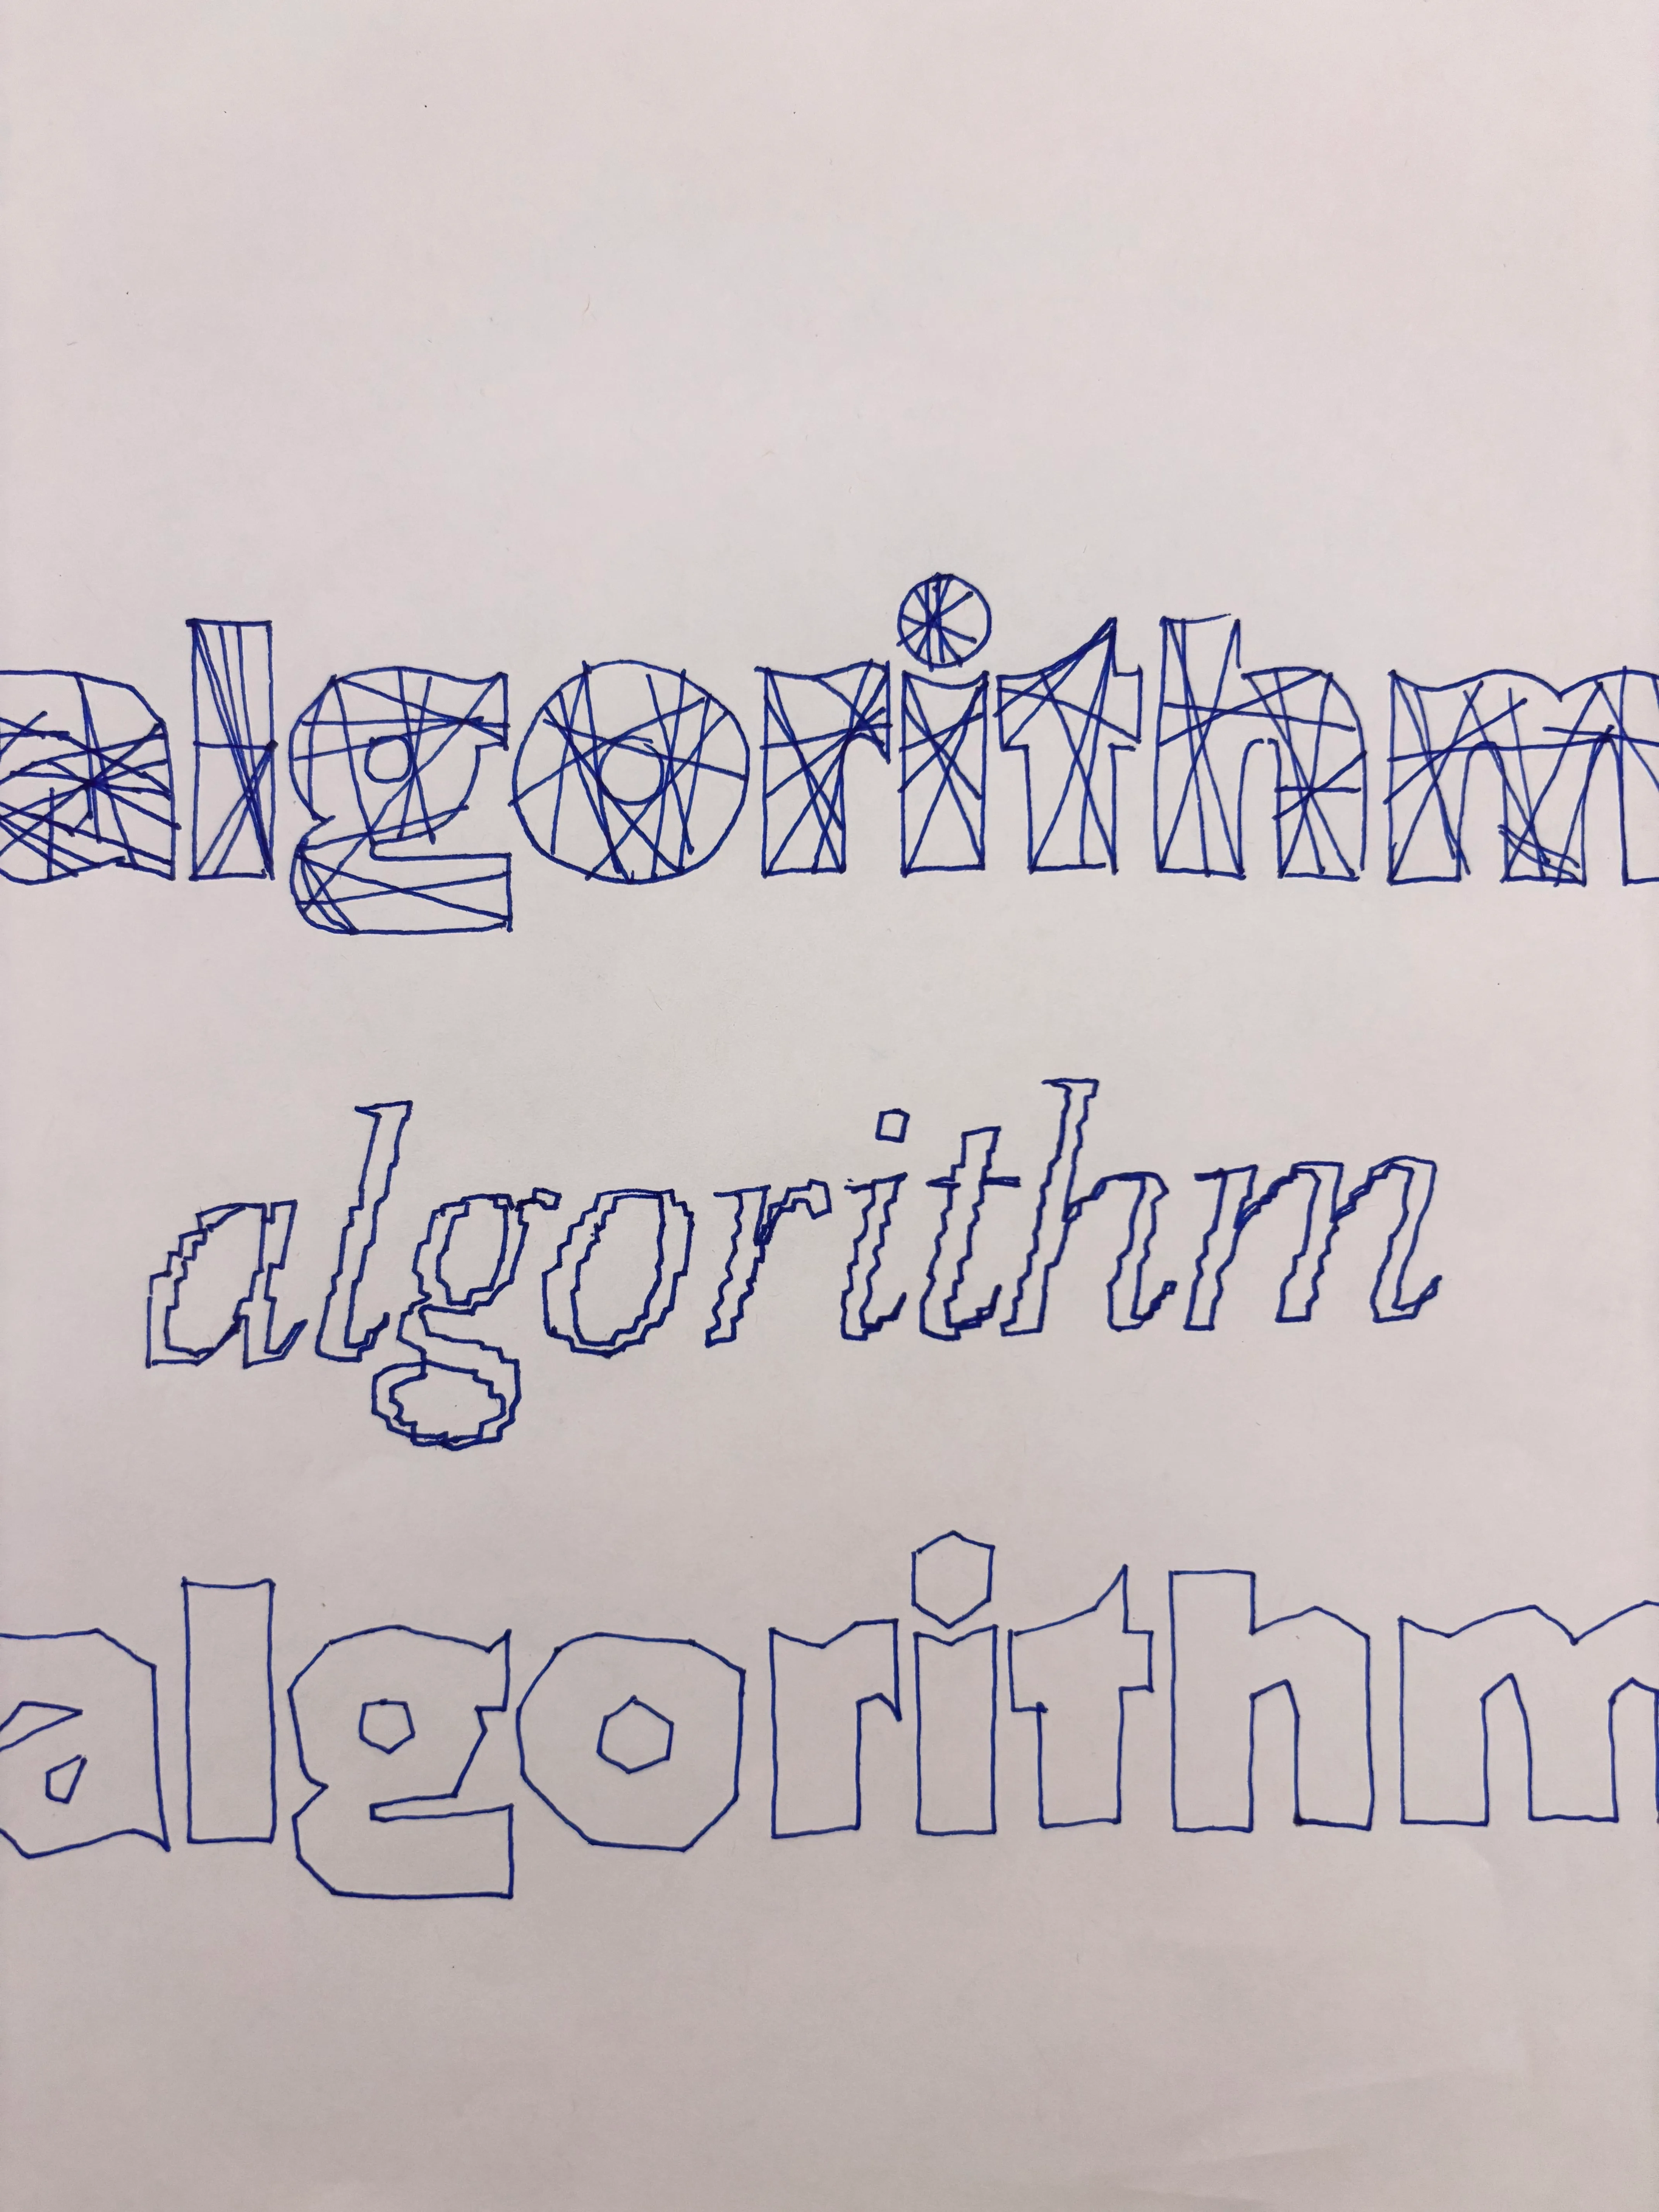 algorithm
algorithm
algorithm